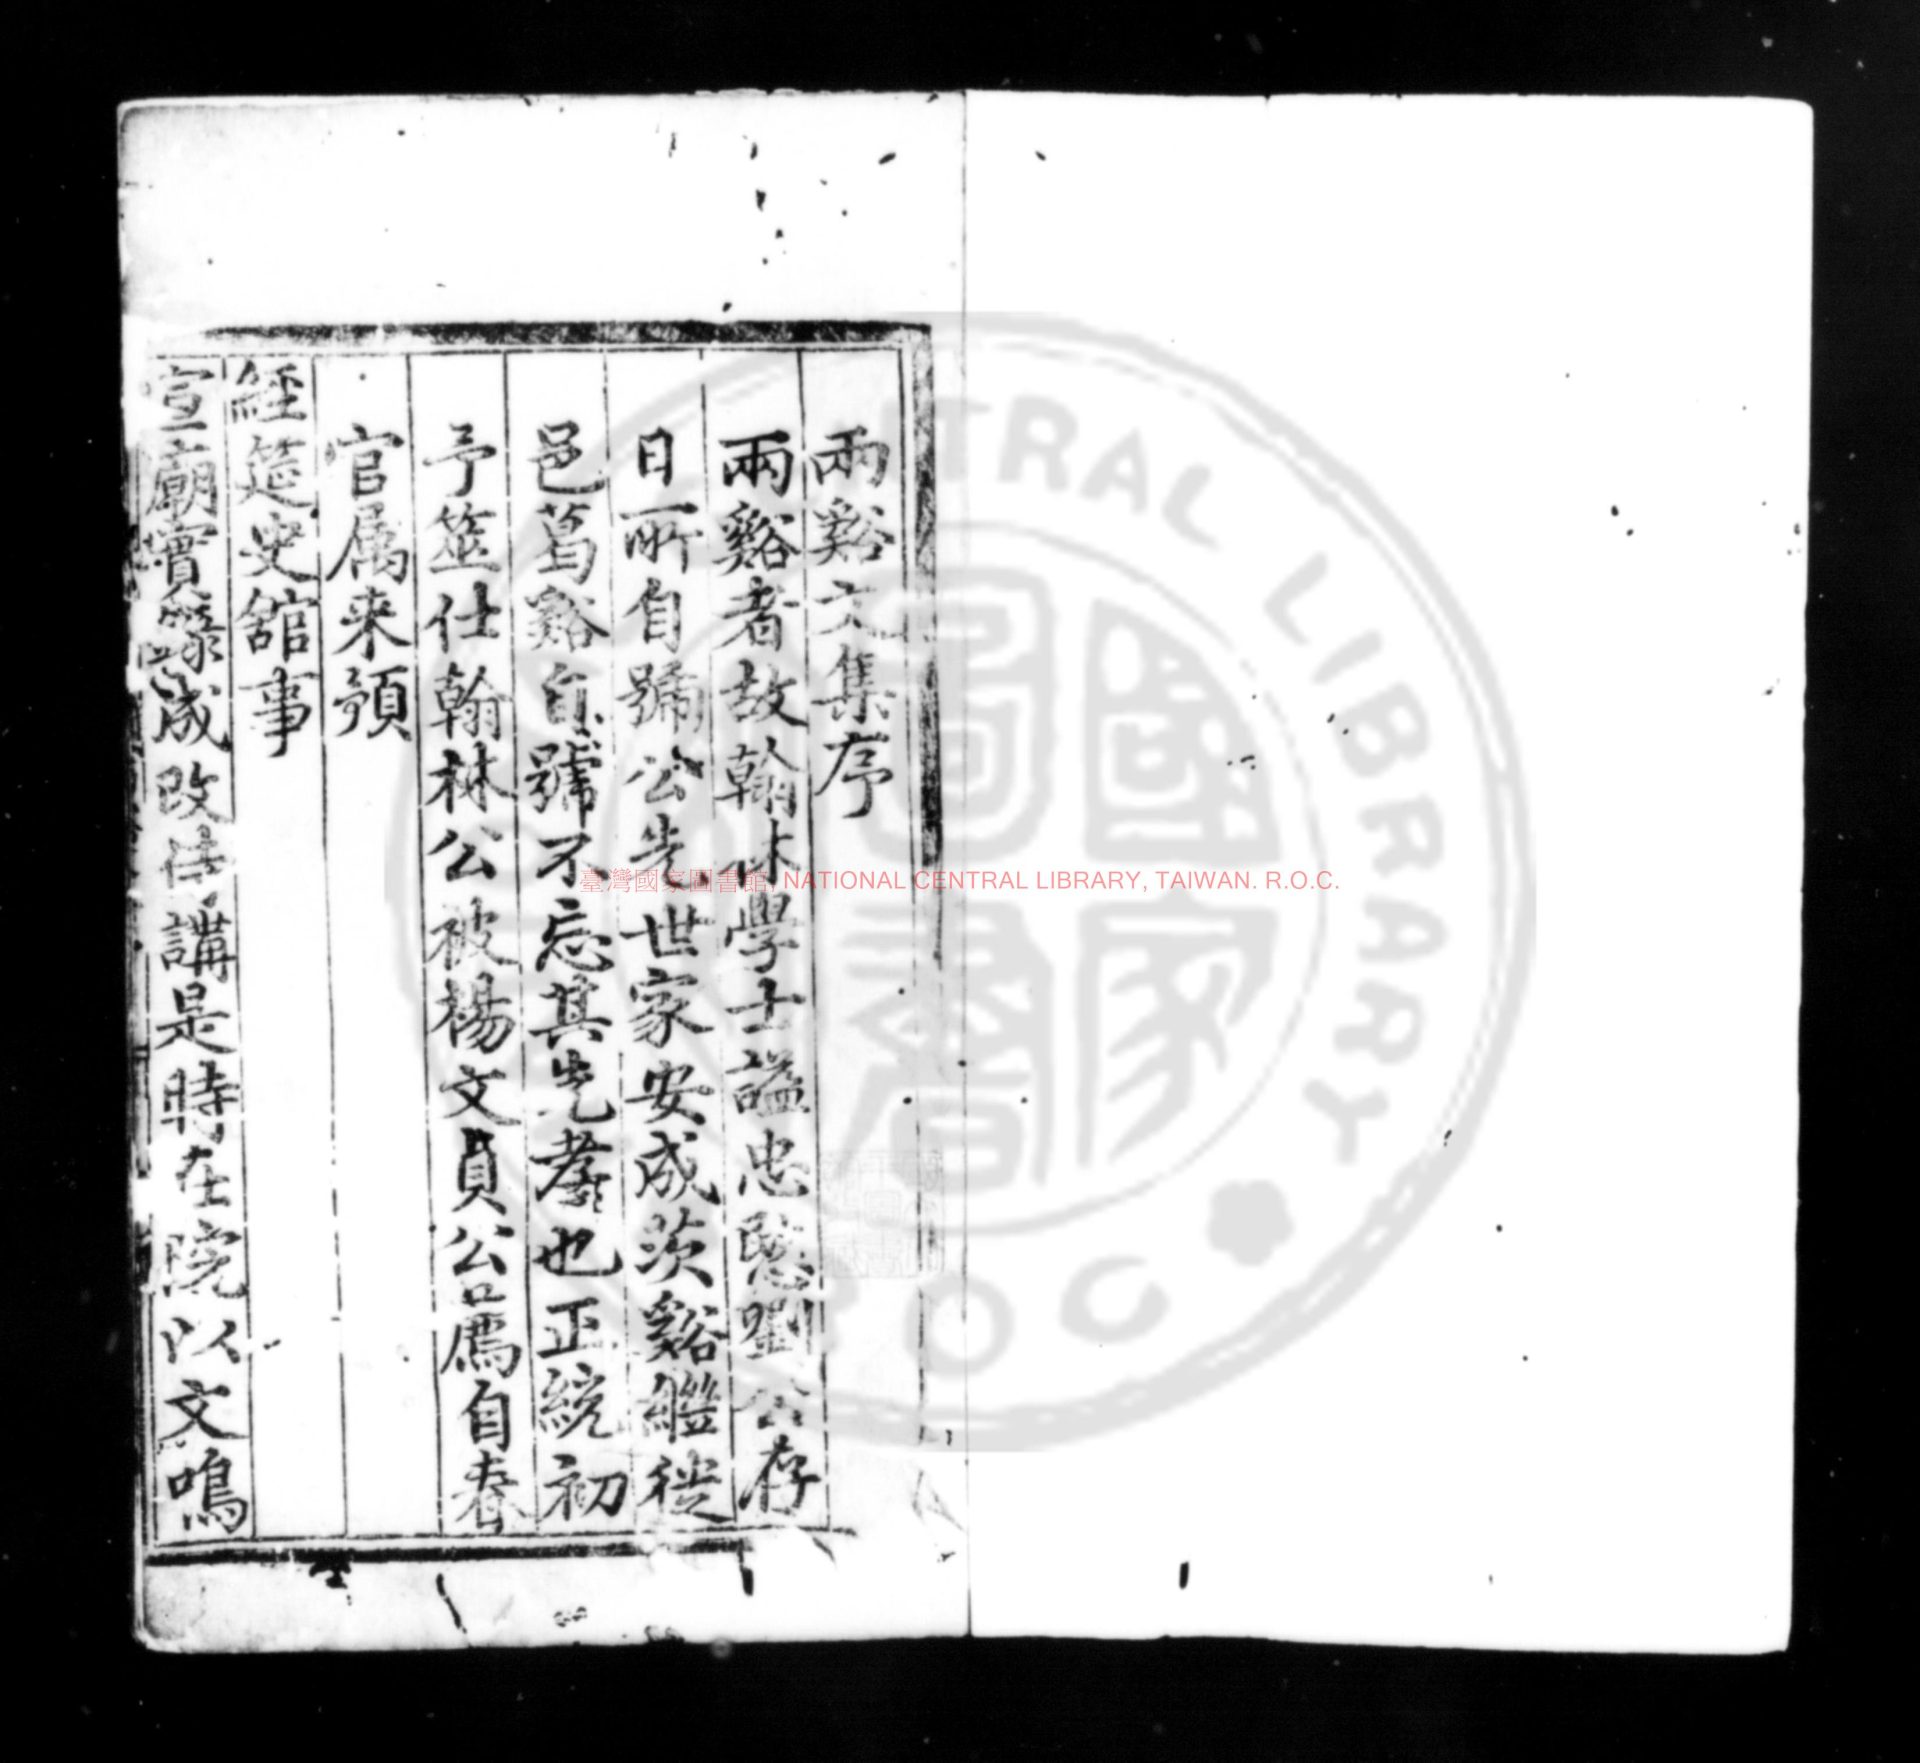 兩谿文集序
兩谿者故翰林學士謚忠愍劉公存
日所自號公先世家安成茨谿繼徙
邑葛谿自號不忘其先孝也正統初
予筮仕翰林公被楊文貞公薦自春
官属来領
經筵史舘事
宣廟實錄成改侍講是時在院以文鳴
臺灣國家圖書館, NATIONAL CENTRAL LIBRARY, TAIWAN. R.O.C.